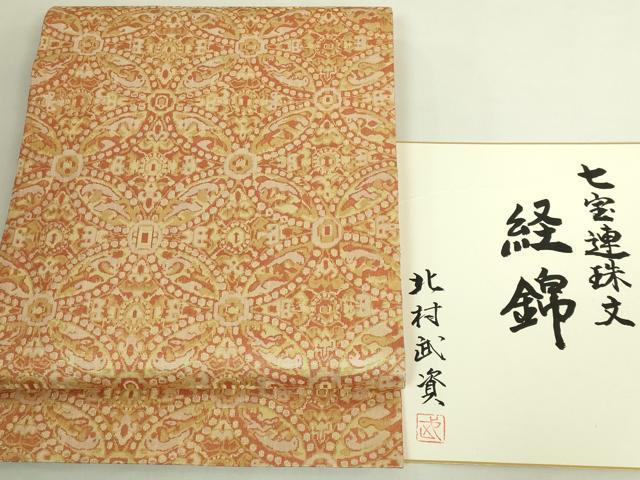 七宝連珠文
経錦
北村武資
武